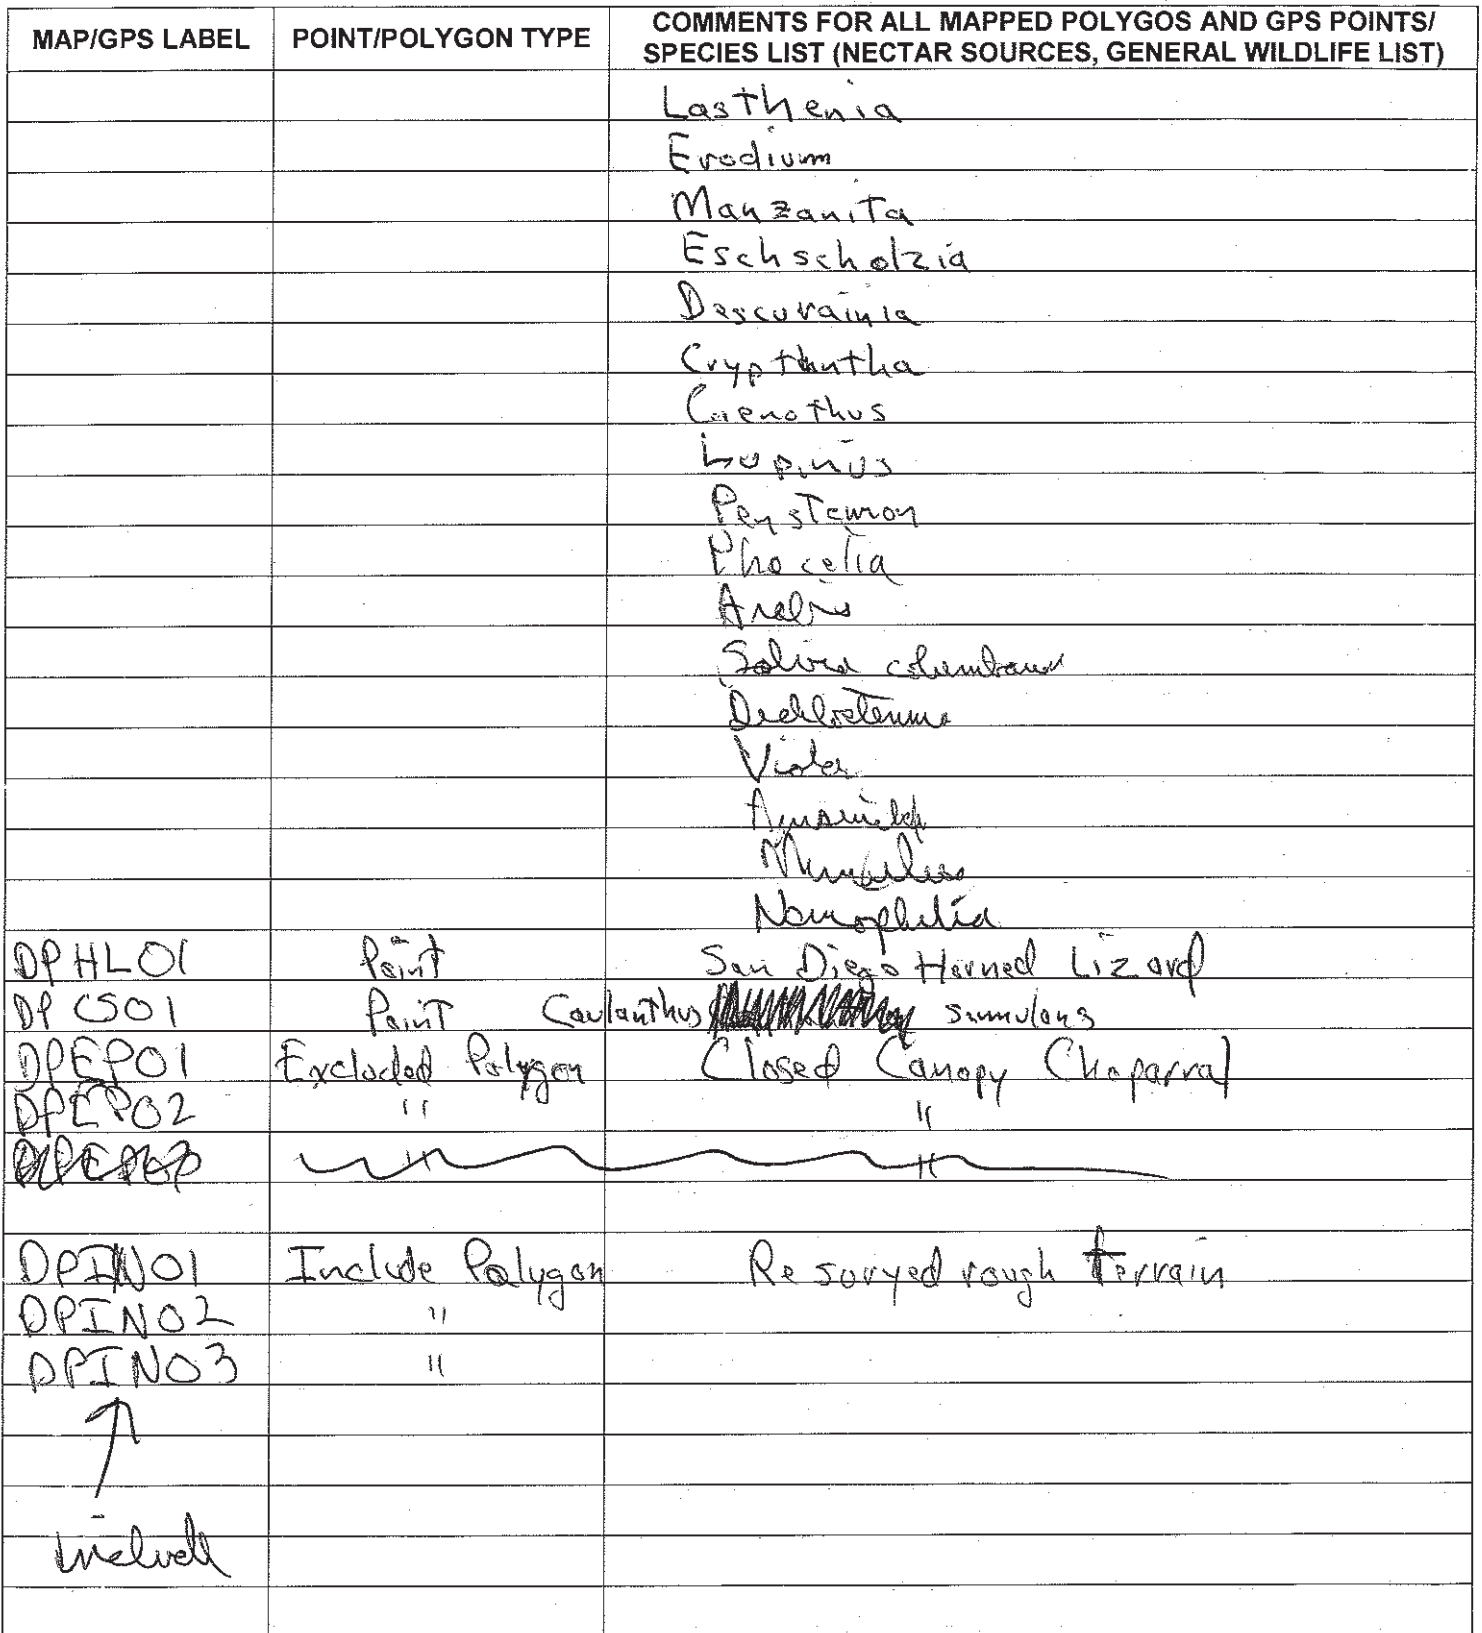 MAP/GPS LABEL POINT/POLYGON TYPE COMMENTS FOR ALL MAPPED POLYGOS AND GPS POINTS/
SPECIES LIST (NECTAR SOURCES, GENERAL WILDLIFE LIST)
Lasthenia
Erodium
Manzanita
Eschscholzia
Descurainia
Crypthntha
Caenothus
Lupinus
Penstemon
Phacelia
Arabis
Salvia
Dichlostemma
Viola
Amsinckia
Mimulus
Nemophilia
DPHL01 Point San Diego Horned Lizard
DPCS01 Point Caulanthus simulans
DPEP01 Excluded Polygon Closed Canopy Chaparral
DPEP02 " "
" "
DPIN01 Include Polygon Resuryed rough terrain
DPIN02 "
DPIN03 "
include